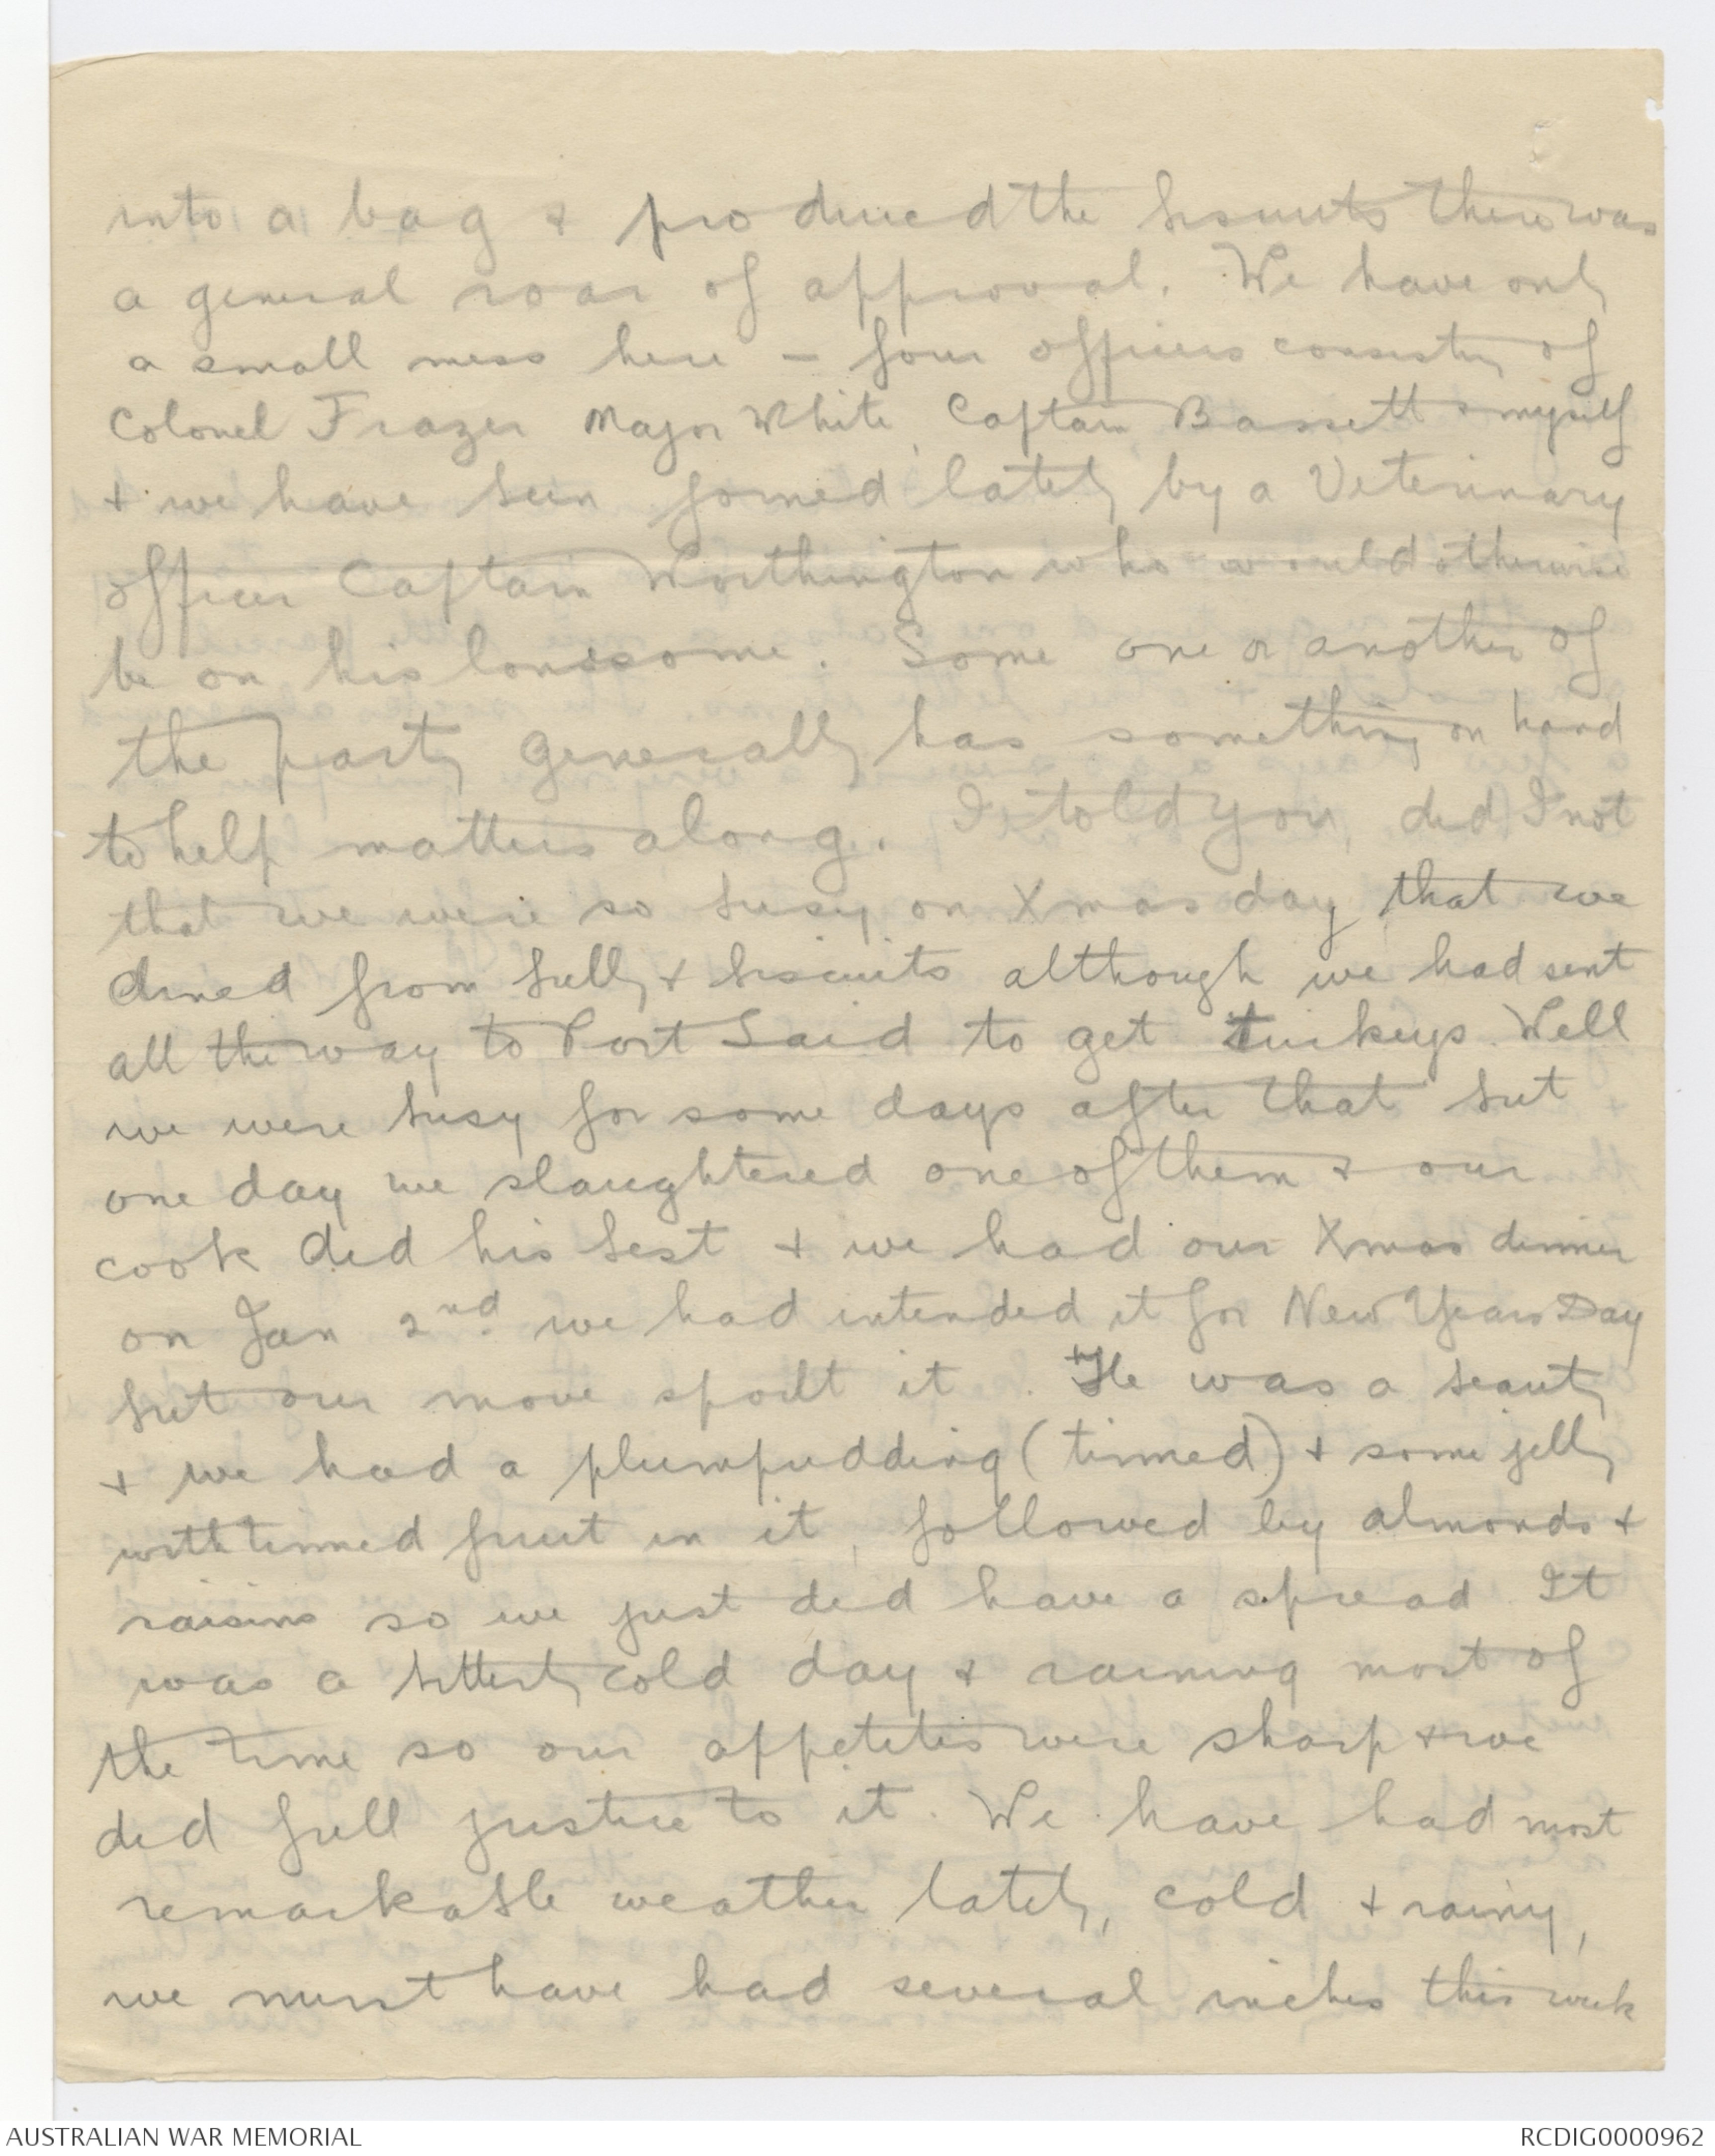 into a bag & produced the biscuits there was
a general roar of approval. We have only
a small mess here - four officers consisting of
Colonel Frazer Major White, Captain Bassett & myself
& we have been joined lately by a Veterinary
officer Captain Worthington who would otherwise
be on his lonesome. Some one or another of
the party generally has something on hand
to help matters along. I told you, did I not
that we were so busy on Xmas day that we
dined from bully & biscuits although we had sent
all the way to Port Said to get turkeys. Well
we were busy for some days after that but
one day we slaughtered one of them & our
cook did his best & we had our Xmas dinner
on Jan 2nd we had intended it for New Years Day
but our move spoilt it. He was a beauty
& we had a plumpudding (tinned) & some jelly
with tinned fruit in it, followed by almonds &
raisins so we just did have a spread. It
was a bitterly cold day & raining most of
the time so our appetites were sharp & we
did full justice to it. We have had most
remarkable weather lately, cold & rainy,
we must have had several inches this week
AUSTRALIAN WAR MEMORIAL
RCDIG0000962